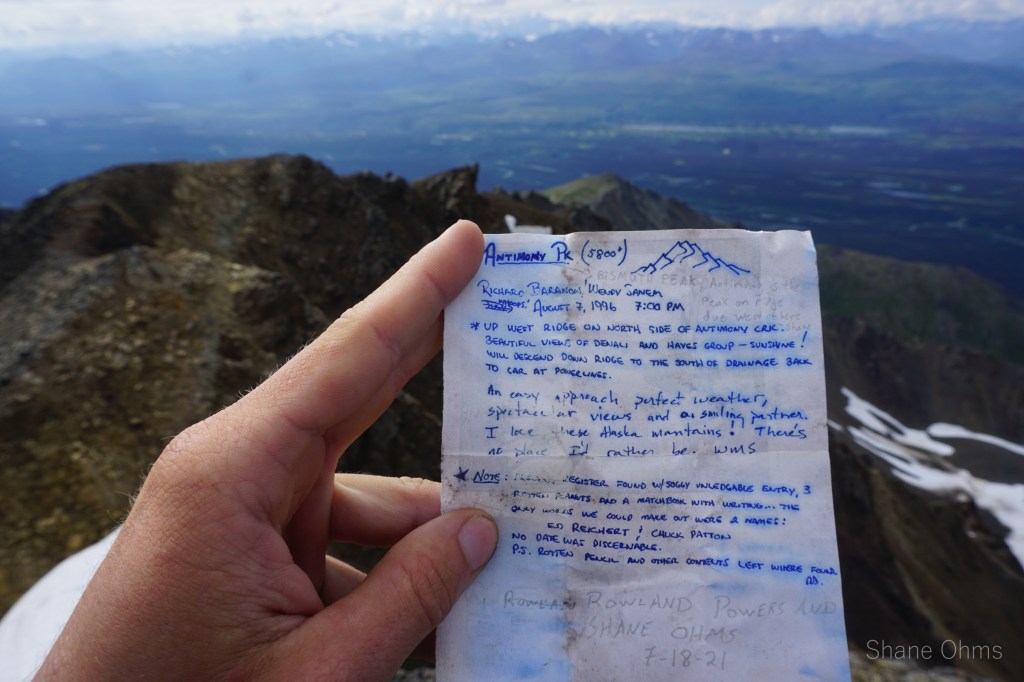 ANTIMONY PK (5800+)
BISMUTH PEAK, Antimony is the
peak on ridge
due west of here
RICHARD BARANOW, WENDY SANEM
AUGUST 7, 1996 7:00 PM
* UP WEST RIDGE ON NORTH SIDE OF ANTIMONY CRK.
BEAUTIFUL VIEWS OF DENALI AND HAYES GROUP - SUNSHINE!
WILL DESCEND DOWN RIDGE TO THE SOUTH OF DRAINAGE BACK
TO CAR AT POWERLINES.
An easy approach, perfect weather,
spectacular views and a smiling partner.
I love these Alaska mountains! There's
no place I'd rather be. WMS
* NOTE: REGISTER FOUND W/SOGGY UNLEDGABLE ENTRY, 3
ROTTEN PLANTS AND A MATCHBOOK WITH WRITING... THE
ONLY WORDS WE COULD MAKE OUT WERE 2 NAMES:
ED REICHERT & CHUCK PATTON
NO DATE WAS DISCERNABLE.
P.S. ROTTEN PENCIL AND OTHER CONTENTS LEFT WHERE FOUND
RB.
ROWLAND POWERS AND
SHANE OHMS
7-18-21
Shane Ohms